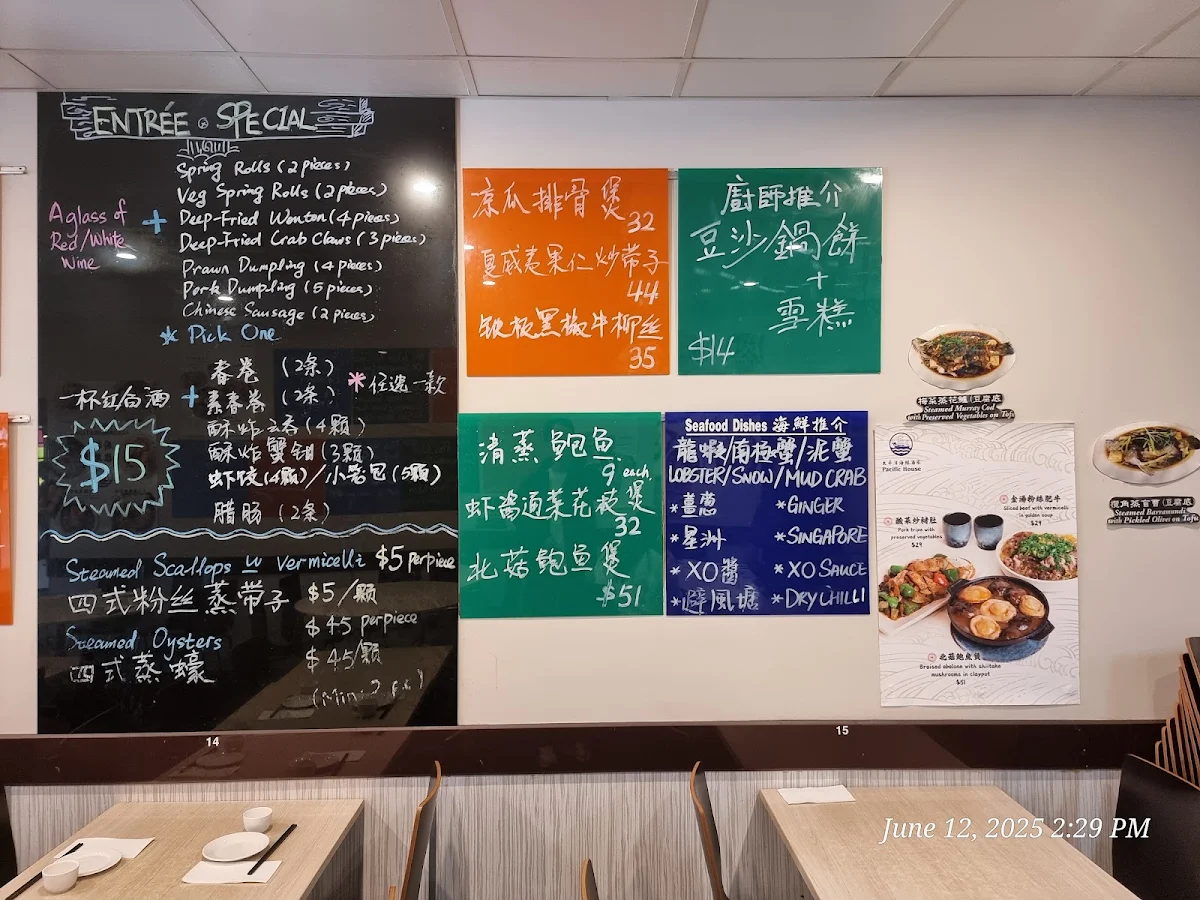 ENTRÉE SPECIAL
Spring Rolls (2 pieces)
Veg Spring Rolls (2 pieces)
Deep-Fried Wonton (4 pieces)
Deep-Fried Crab Claws (3 pieces)
Prawn Dumpling (4 pieces)
Pork Dumpling (5 pieces)
Chinese Sausage (2 pieces)
A glass of
Red/White
Wine
+
* Pick One
春卷 (2条)
素春卷 (2条)
酥炸云吞 (4颗)
酥炸蟹钳 (3颗)
虾饺(4颗)/小笼包(5颗)
腊肠 (2条)
*任选一款
一杯红白酒 +
$15
Steamed Scallops w Vermicelli $5 per piece
四式粉丝蒸带子 $5/颗
Steamed Oysters $4.5 per piece
四式蒸蠔 $4.5/颗
(Min 2 pcs)
凉瓜排骨煲
32
夏威夷果仁炒带子
44
铁板黑椒牛柳丝
35
廚師推介
豆沙鍋餅
+
雪糕
$14
清蒸鲍鱼
9 each
虾酱通菜花枝煲
32
北菇鲍鱼煲
$51
Seafood Dishes 海鮮推介
龍蝦/南極蟹/泥蟹
LOBSTER/SNOW/MUD CRAB
*薑葱 *GINGER
*星洲 *SINGAPORE
*XO醬 *XO SAUCE
*避風塘 *DRY CHILLI
梅菜蒸花鱸(豆腐底
Steamed Murray Cod
with Preserved Vegetables on Tofu
欖角蒸盲曹(豆腐底
Steamed Barramundi
with Pickled Olives on Tofu
太平洋海鮮酒家
Pacific House
金湯粉絲肥牛
Sliced beef with vermicelli
in golden soup
$29
鹹菜炒豬肚
Pork tripe with
preserved vegetables
$29
北菇鮑魚煲
Braised abalone with shiitake
mushrooms in claypot
$51
14
15
June 12, 2025 2:29 PM